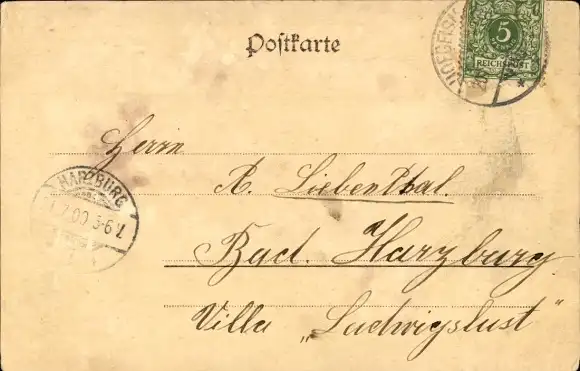 Postkarte
5
REICHSPOST
Herrn
A. Liebenthal.
Bad. Harzburg
Villa „Ludwigslust"
HARZBURG
7.00 5-6 N.